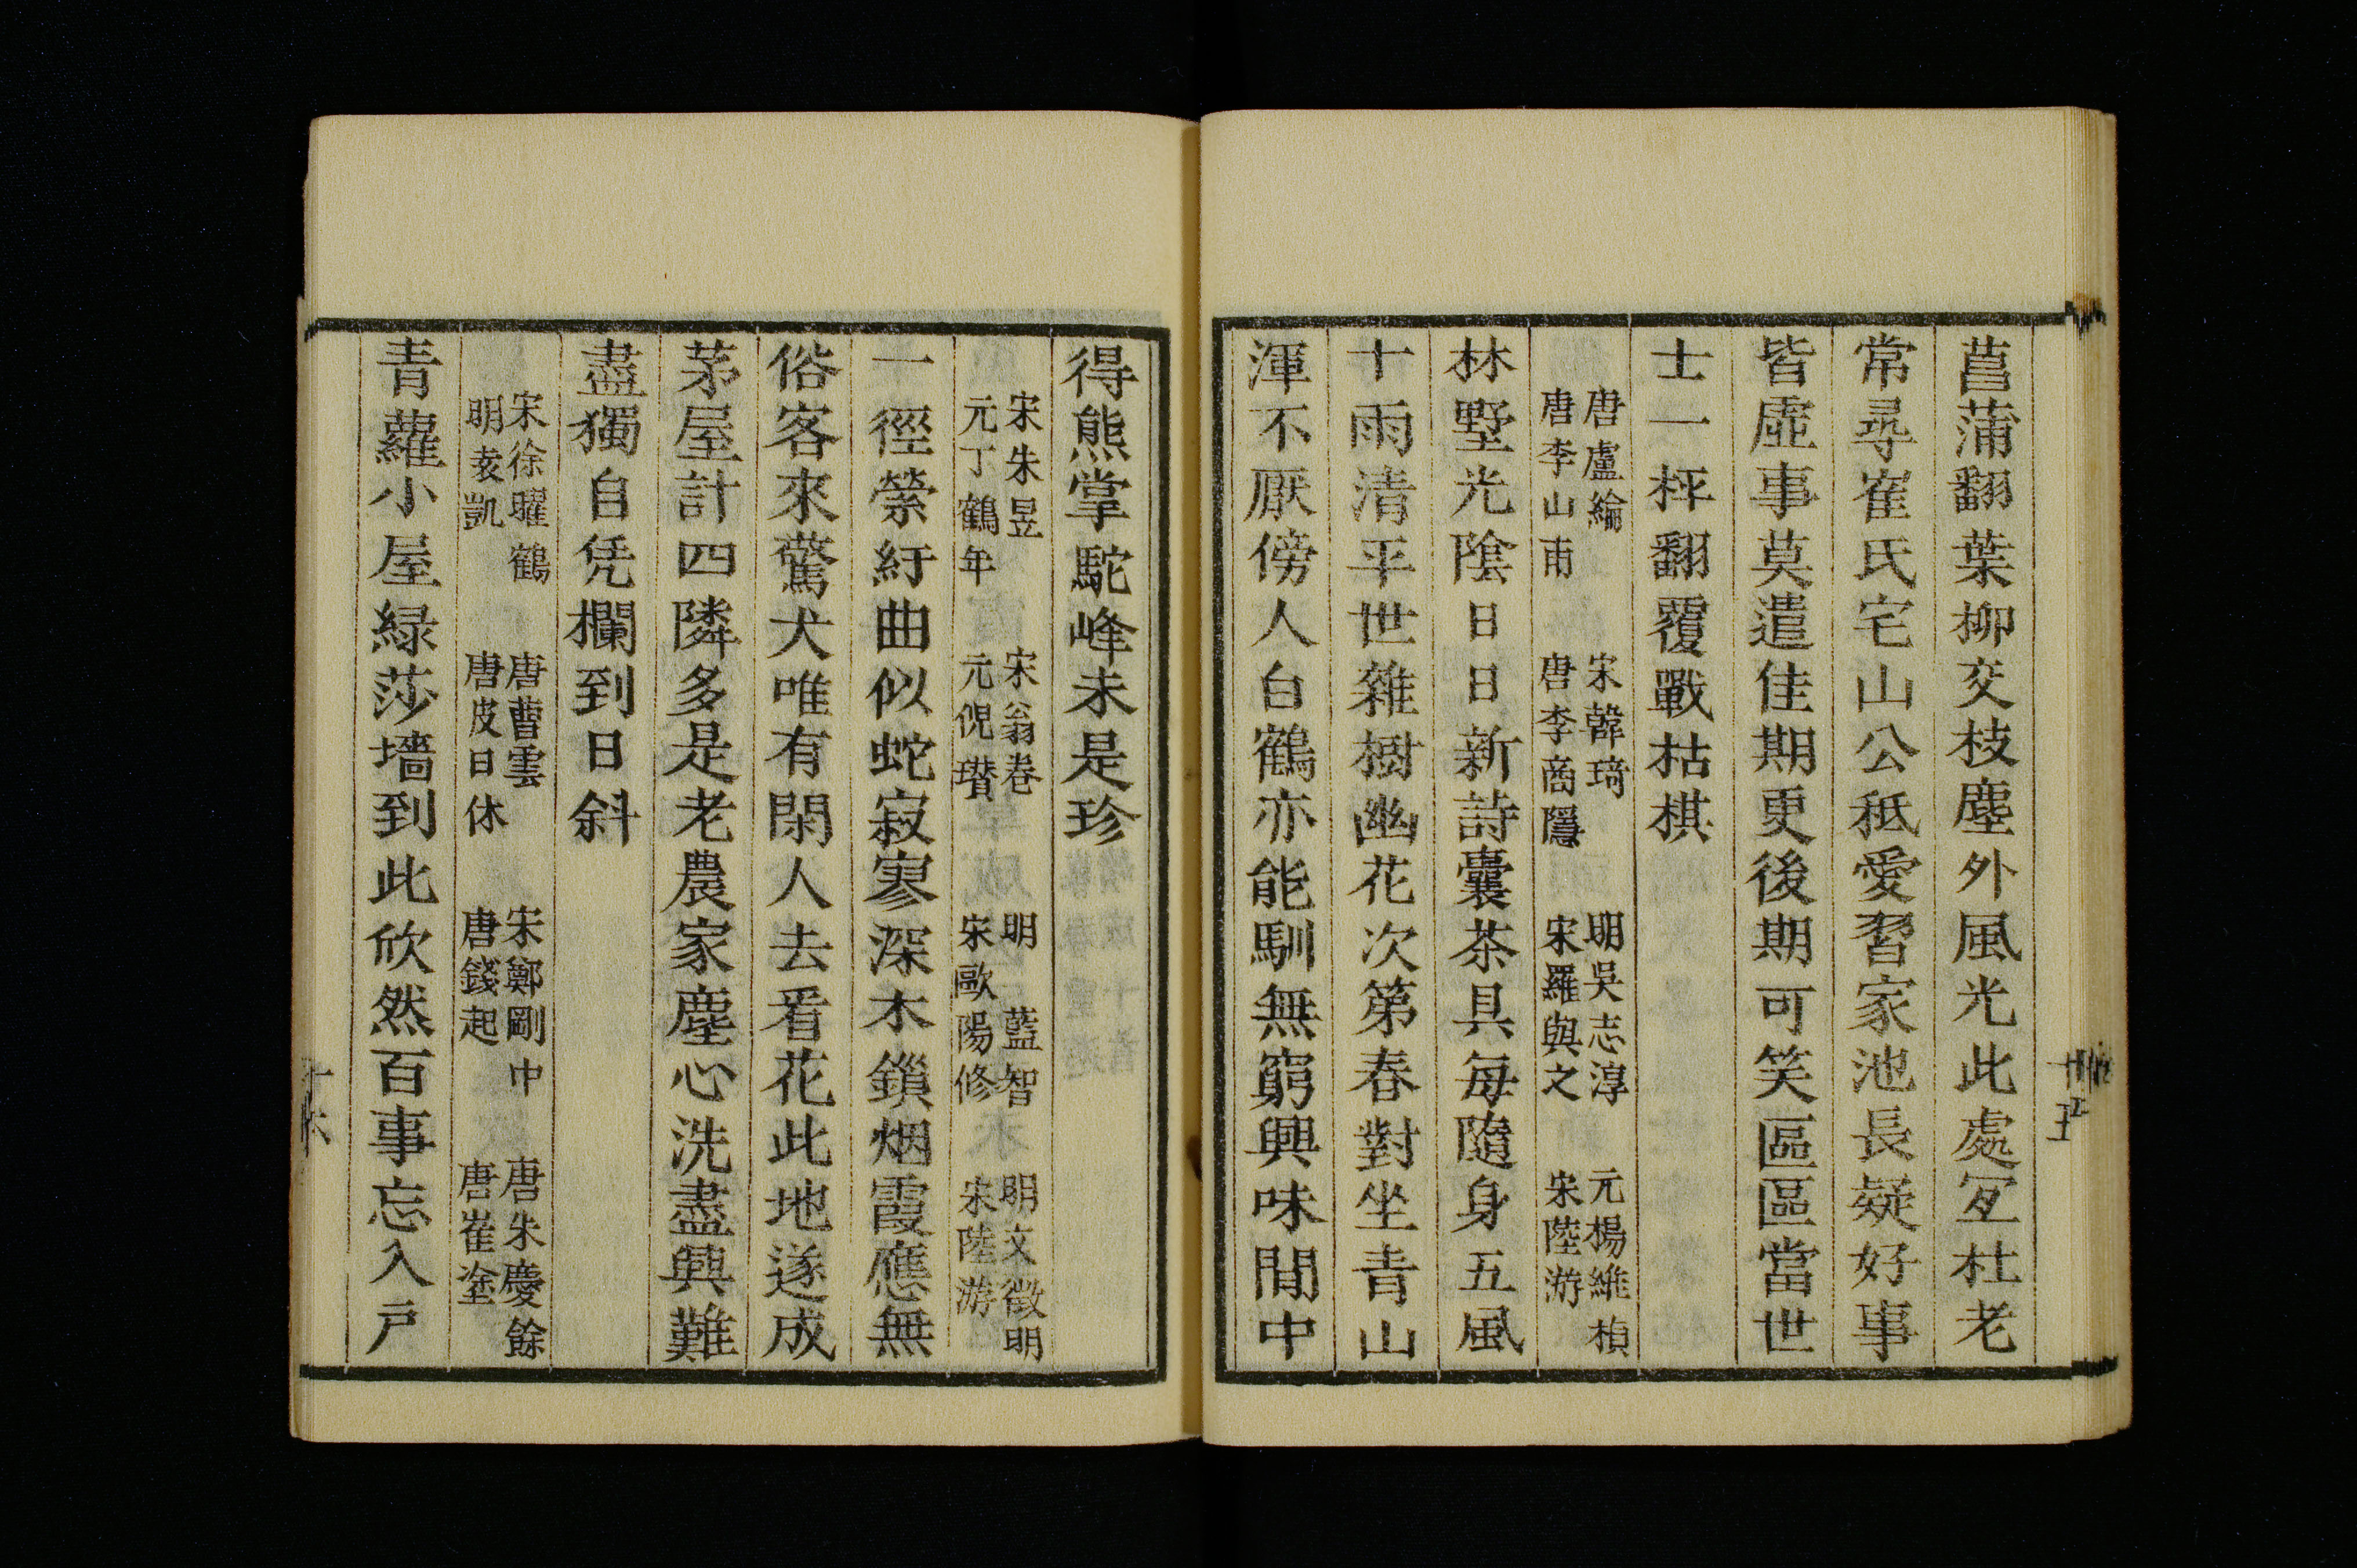 菖蒲翻葉柳交枝塵外風光此處冝杜老
常尋崔氏宅山公秖愛習家池長疑好事
皆虛事莫遣佳期更後期可笑區區當世
士一枰翻覆戰枯棋
唐盧綸 宋韓琦 明吳志淳 元楊維楨
唐李山甫 唐李商隱 宋羅與之 宋陸游
林墅光陰日日新詩囊茶具每隨身五風
十雨清平世雜樹幽花次第春對坐青山
渾不厭傍人白鶴亦能馴無窮興味閒中
得熊掌駝峰未是珍
宋朱昱 宋翁卷 明藍智 明文徵明
元丁鶴年 元倪瓚 宋歐陽修 宋陸游
一徑縈紆曲似蛇寂寥深木鎖烟霞應無
俗客來驚犬唯有閑人去看花此地遂成
茅屋計四隣多是老農家塵心洗盡興難
盡獨自凭欄到日斜
宋徐矅鶴 唐曹雲 宋鄭剛中 唐朱慶餘
明袁凱 唐皮日休 唐錢起 唐崔塗
青蘿小屋緑莎墻到此欣然百事忘入戸